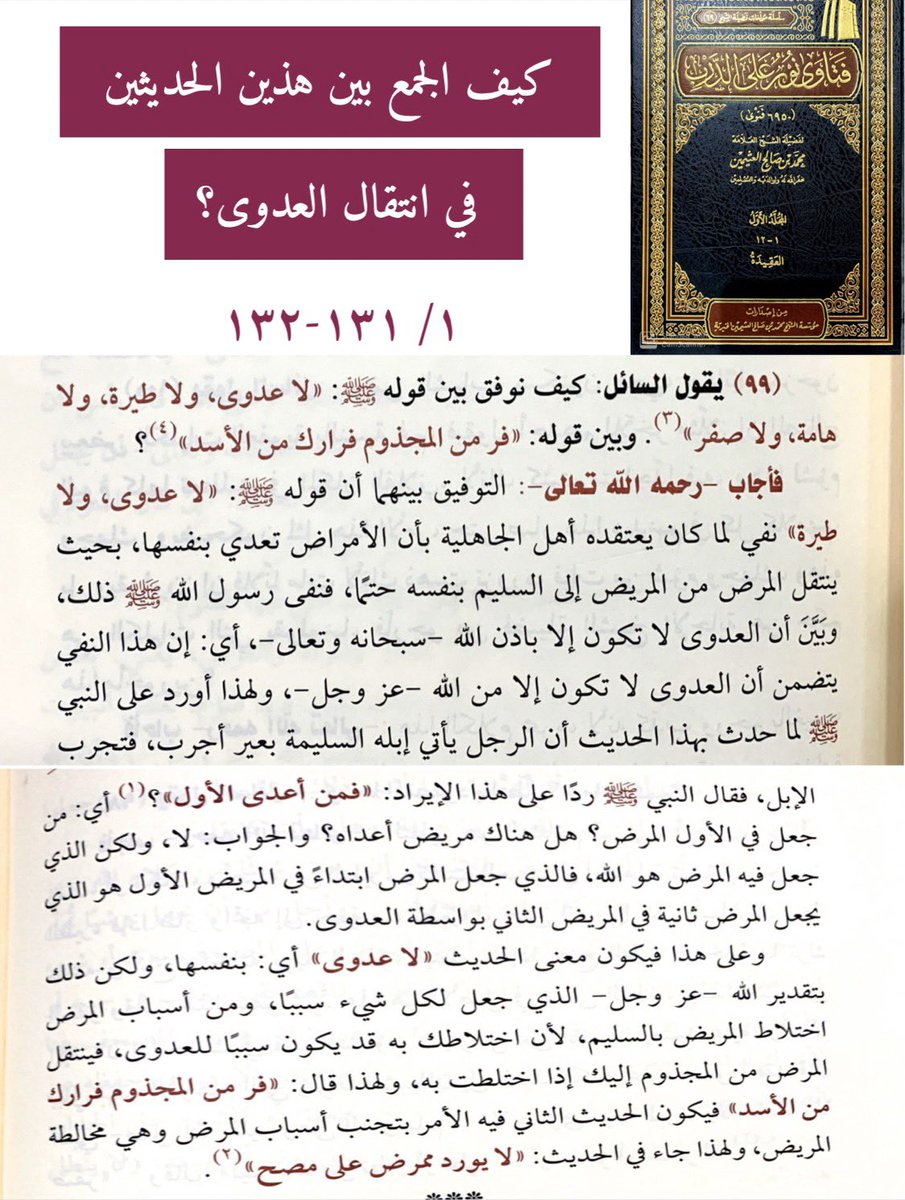 كيف الجمع بين هذين الحديثين
في انتقال العدوى؟
١/ ١٣١-١٣٢
سلسلة مؤلفات فضيلة الشيخ (٦٩)
فتاوى نور على الدرب
(٦٩٥٠ فتوى)
لفضيلة الشيخ العلامة
محمد بن صالح العثيمين
غفر الله له ولوالديه وللمسلمين
المجلد الأول
١-١٢
العقيدة
من إصدارات
مؤسسة الشيخ محمد بن صالح العثيمين الخيرية
CamScanner
(٩٩) يقول السائل: كيف نوفق بين قوله ﷺ: «لا عدوى، ولا طيرة، ولا
هامة، ولا صفر»(٣). وبين قوله: «فر من المجذوم فرارك من الأسد»(٤)؟
فأجاب -رحمه الله تعالى-: التوفيق بينهما أن قوله ﷺ: «لا عدوى، ولا
طيرة» نفي لما كان يعتقده أهل الجاهلية بأن الأمراض تعدي بنفسها، بحيث
ينتقل المرض من المريض إلى السليم بنفسه حتمًا، فنفى رسول الله ﷺ ذلك،
وبَيَّنَ أن العدوى لا تكون إلا بإذن الله -سبحانه وتعالى-، أي: إن هذا النفي
يتضمن أن العدوى لا تكون إلا من الله -عز وجل-، ولهذا أورد على النبي
ﷺ لما حدث بهذا الحديث أن الرجل يأتي إبله السليمة بعير أجرب، فتجرب
الإبل، فقال النبي ﷺ ردًا على هذا الإيراد: «فمن أعدى الأول»؟(١) أي: من
جعل في الأول المرض؟ هل هناك مريض أعداه؟ والجواب: لا، ولكن الذي
جعل فيه المرض هو الله، فالذي جعل المرض ابتداءً في المريض الأول هو الذي
يجعل المرض ثانية في المريض الثاني بواسطة العدوى.
وعلى هذا فيكون معنى الحديث «لا عدوى» أي: بنفسها، ولكن ذلك
بتقدير الله -عز وجل- الذي جعل لكل شيء سببًا، ومن أسباب المرض
اختلاط المريض بالسليم، لأن اختلاطك به قد يكون سببًا للعدوى، فينتقل
المرض من المجذوم إليك إذا اختلطت به، ولهذا قال: «فر من المجذوم فرارك
من الأسد» فيكون الحديث الثاني فيه الأمر بتجنب أسباب المرض وهي مخالطة
المريض، ولهذا جاء في الحديث: «لا يورد ممرض على مصح»(٢).
***